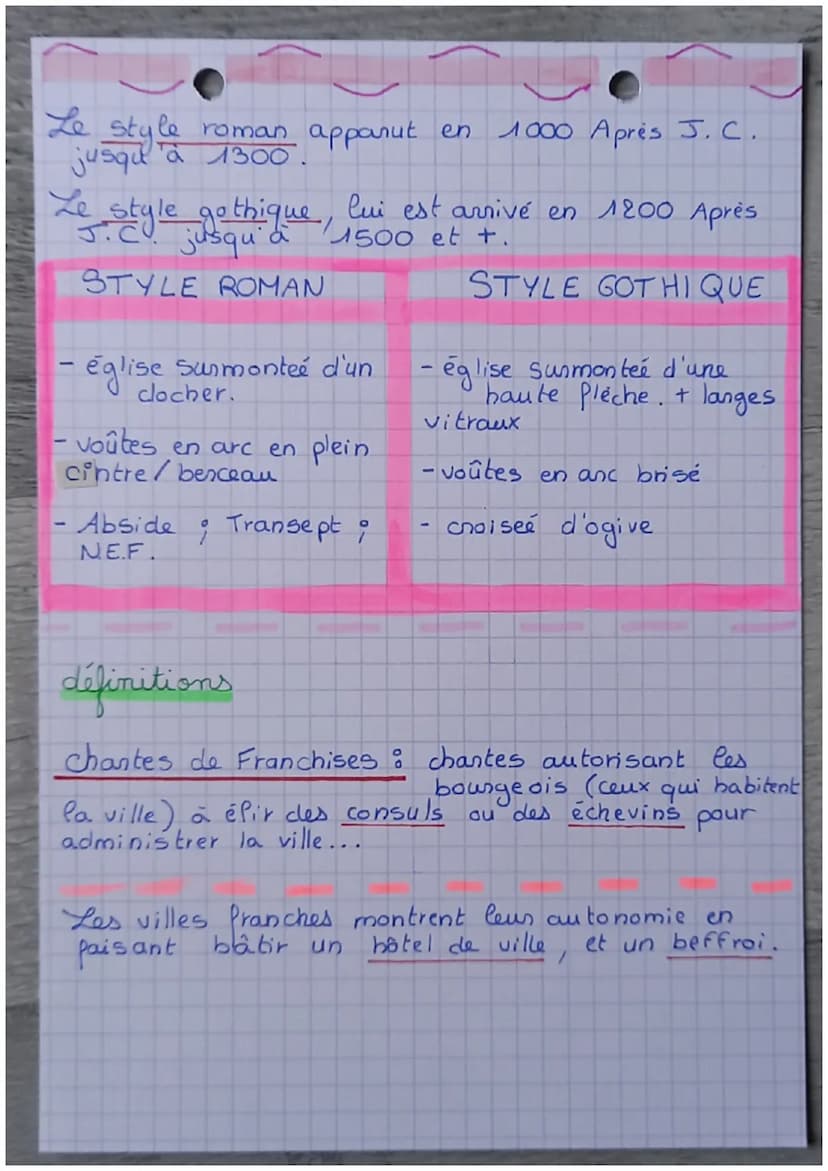 Le style roman apparut en 1000 Après J.C.
jusqu'à 1300.
Le style gothique, lui est arrivé en 1200 Après
J.C. jusqu'à 1500 et +.
STYLE ROMAN
- église surmonteé d'un
clocher.
- voûtes en arc en plein
cintre / berceau
- Abside ; Transept ;
N.E.F.
STYLE GOTHIQUE
- église surmonteé d'une
haute flèche. + larges
vitraux
- voûtes en arc brisé
- croiseé d'ogive
définitions
Chartes de Franchises : chartes autorisant les
bourgeois (ceux qui habitent
la ville) à élir des consuls ou des échevins pour
administrer la ville...
Les villes franches montrent leur autonomie en
faisant bâtir un hôtel de ville, et un beffroi.